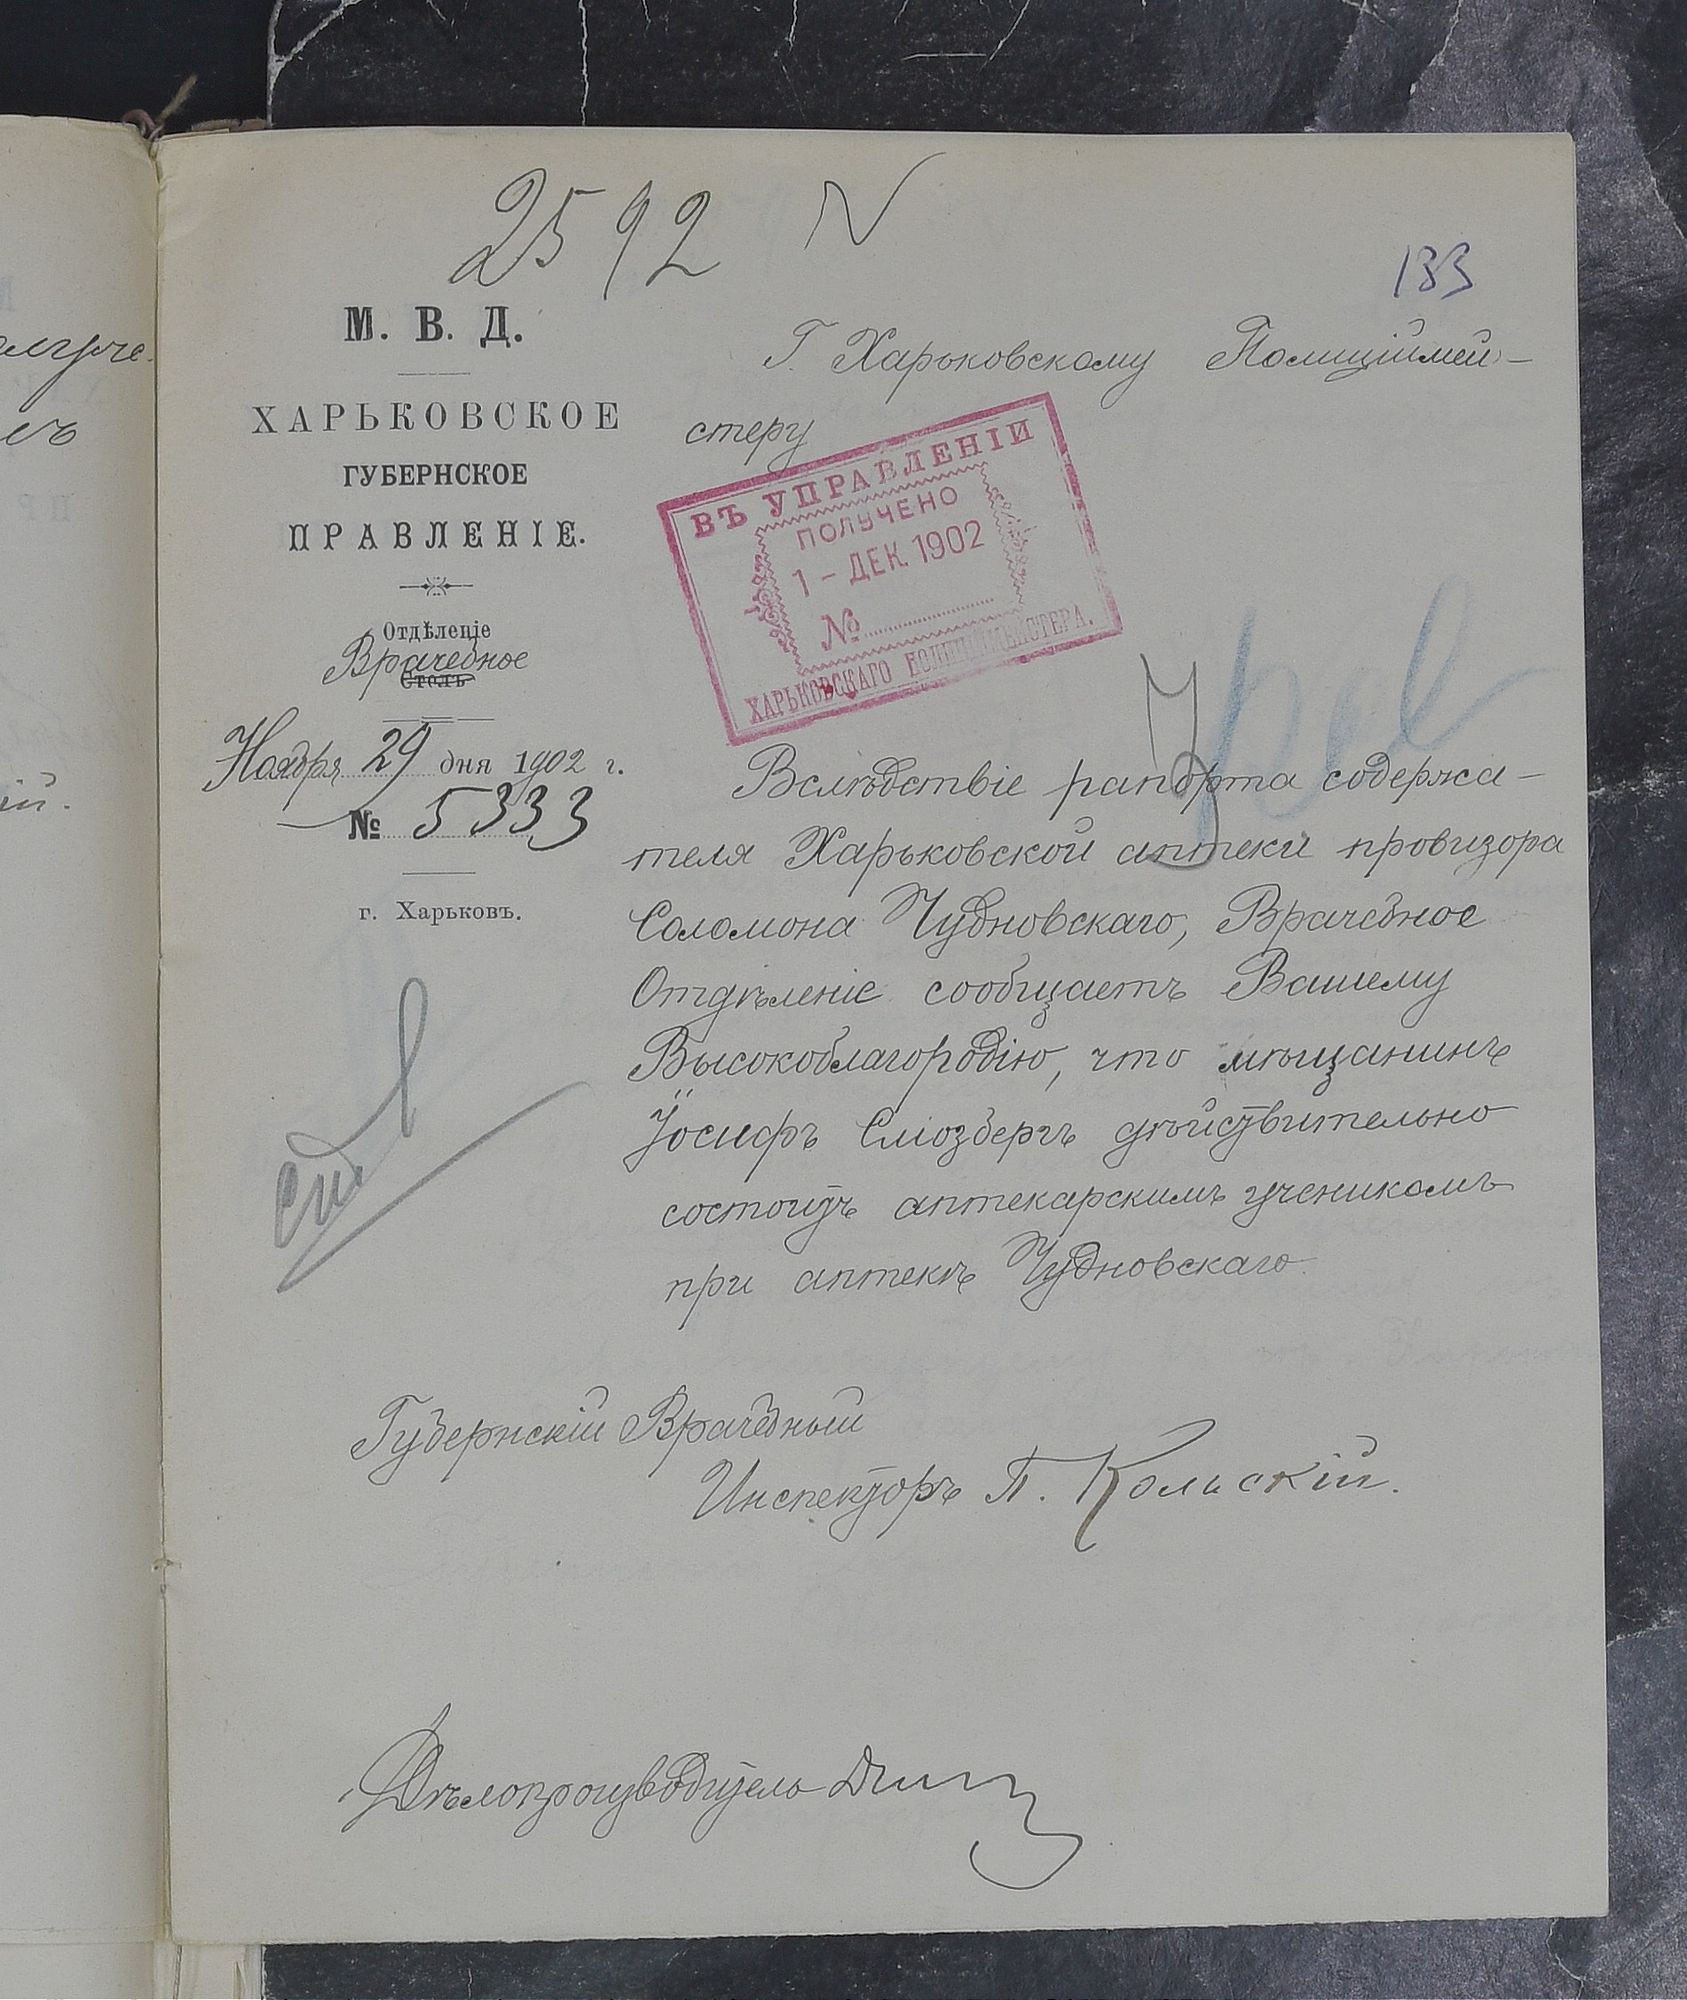 2592
133
М. В. Д.
ХАРЬКОВСКОЕ
ГУБЕРНСКОЕ
ПРАВЛЕНІЕ.
Отдѣленіе
Врачебное
Столъ
Ноября 29 дня 1902 г.
№ 5333
г. Харьковъ.
Г. Харьковскому Полиціймей-
стеру
ВЪ УПРАВЛЕНІИ
ПОЛУЧЕНО
1 - ДЕК. 1902
№
ХАРЬКОВСКАГО ПОЛИЦІЙМЕЙСТЕРА.
Вслѣдствіе рапорта содержа-
теля Харьковской аптеки провизора
Соломона Чудновскаго, Врачебное
Отдѣленіе сообщаетъ Вашему
Высокоблагородію, что мѣщанинъ
Іосифъ Сліозбергъ дѣйствительно
состоитъ аптекарскимъ ученикомъ
при аптекѣ Чудновскаго.
Губернскій Врачебный
Инспекторъ П. Кольскій.
Дѣлопроизводитель